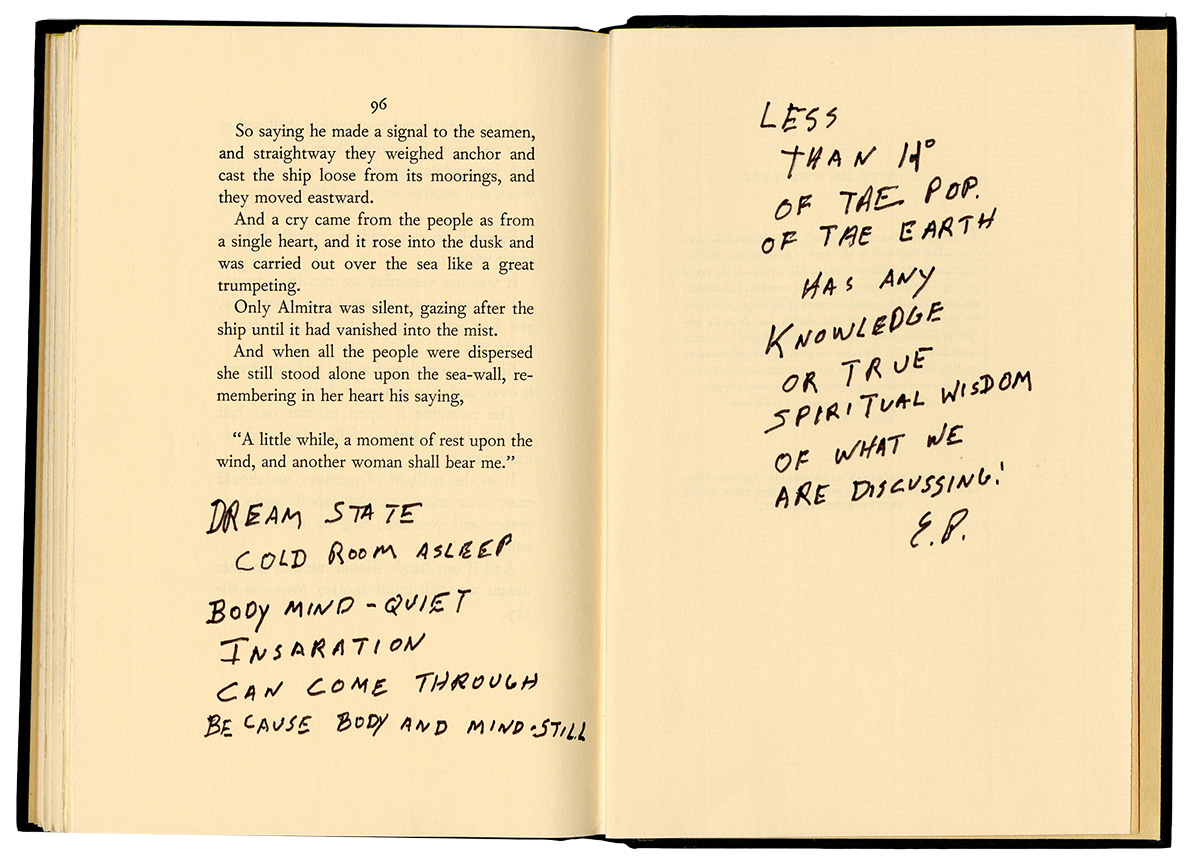 96
So saying he made a signal to the seamen,
and straightway they weighed anchor and
cast the ship loose from its moorings, and
they moved eastward.
And a cry came from the people as from
a single heart, and it rose into the dusk and
was carried out over the sea like a great
trumpeting.
Only Almitra was silent, gazing after the
ship until it had vanished into the mist.
And when all the people were dispersed
she still stood alone upon the sea-wall, re-
membering in her heart his saying,
“A little while, a moment of rest upon the
wind, and another woman shall bear me.”
DREAM STATE
COLD ROOM ASLEEP
BODY MIND - QUIET
INSARATION
CAN COME THROUGH
BECAUSE BODY AND MIND · STILL
LESS
THAN
OF THE POP.
OF THE EARTH
HAS ANY
KNOWLEDGE
OR TRUE
SPIRITUAL WISDOM
OF WHAT WE
ARE DISCUSSING!
E.P.